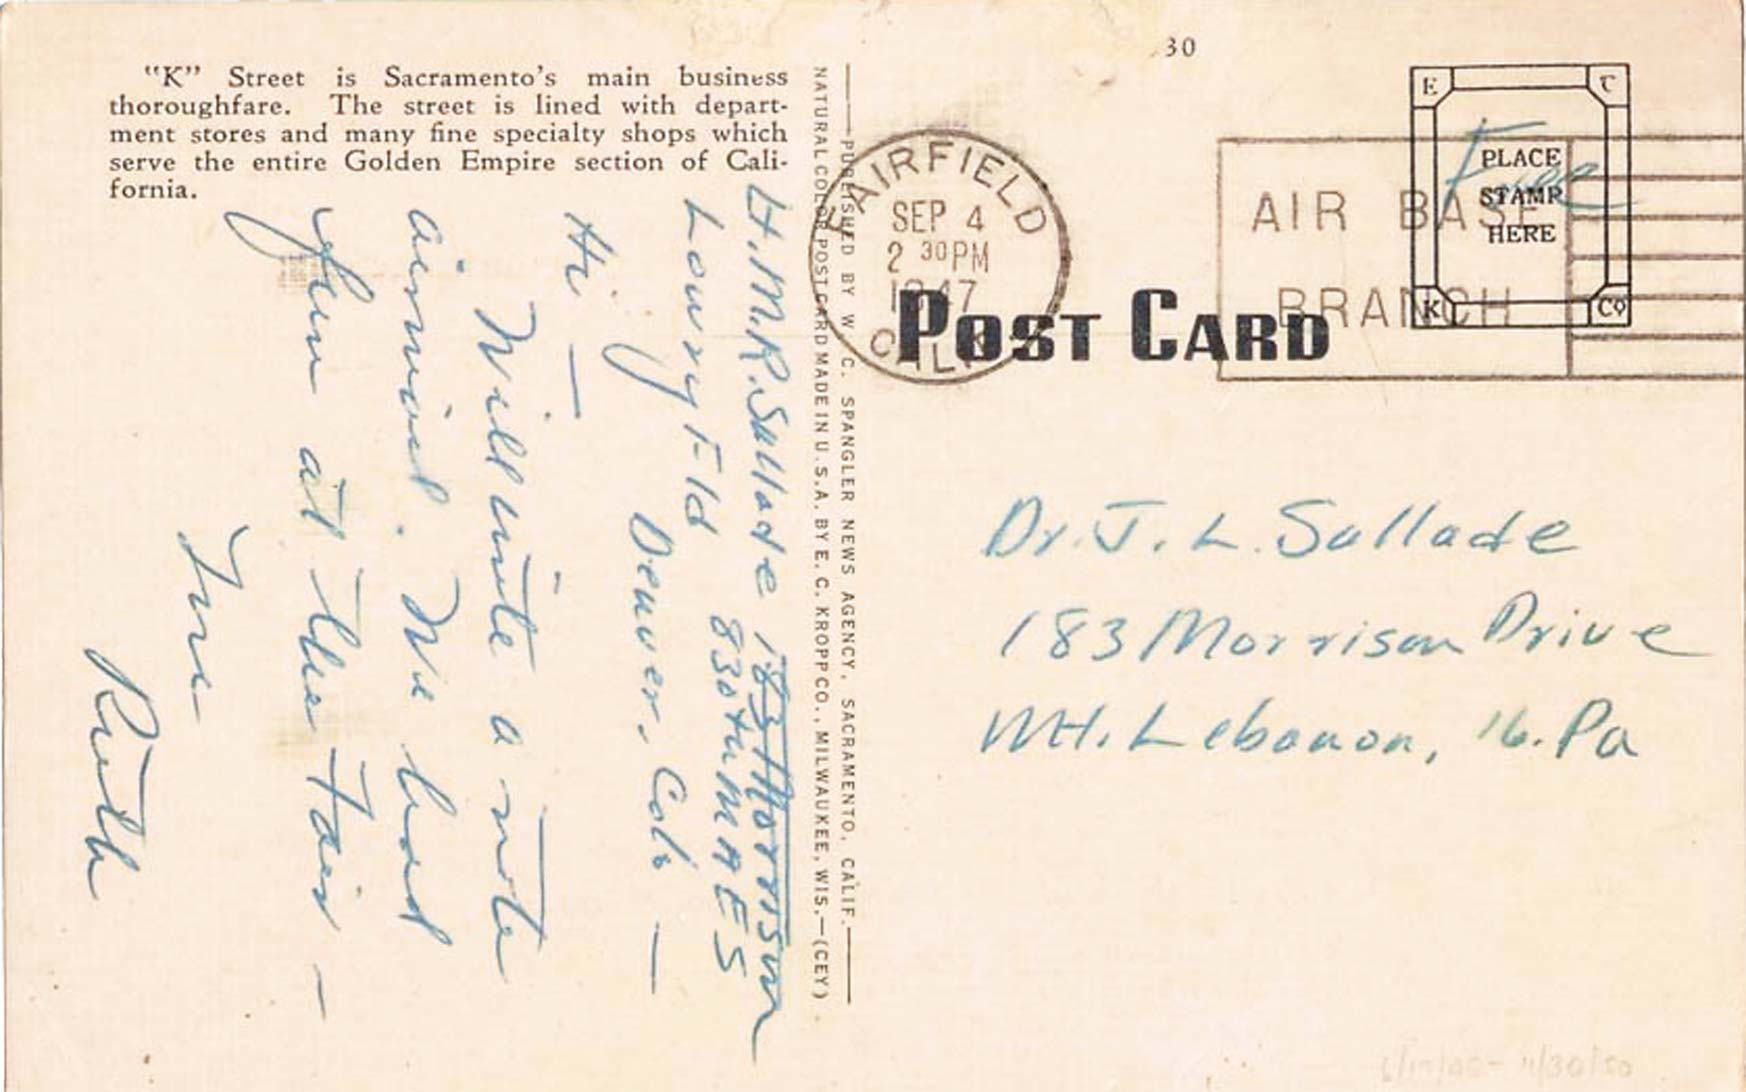 "K" Street is Sacramento's main business
thoroughfare. The street is lined with depart-
ment stores and many fine specialty shops which
serve the entire Golden Empire section of Cali-
fornia.
Lt. M. R. Sallade 183 Morrison
Lowry Fld 830th MAES
Denver, Colo —
Hi —
Will write a note
airmail. We had
fun at the Fair —
Ruth
PUBLISHED BY W. C. SPANGLER NEWS AGENCY, SACRAMENTO, CALIF.
NATURAL COLOR POST CARD MADE IN U.S.A. BY E. C. KROPP CO., MILWAUKEE, WIS.—(CEY)
30
FAIRFIELD
SEP 4
2 30 PM
1947
CALIF.
AIR BASE
BRANCH
E C
Free
PLACE
STAMP
HERE
K Co
POST CARD
Dr. J. L. Sallade
183 Morrison Drive
Mt. Lebanon, 16. Pa